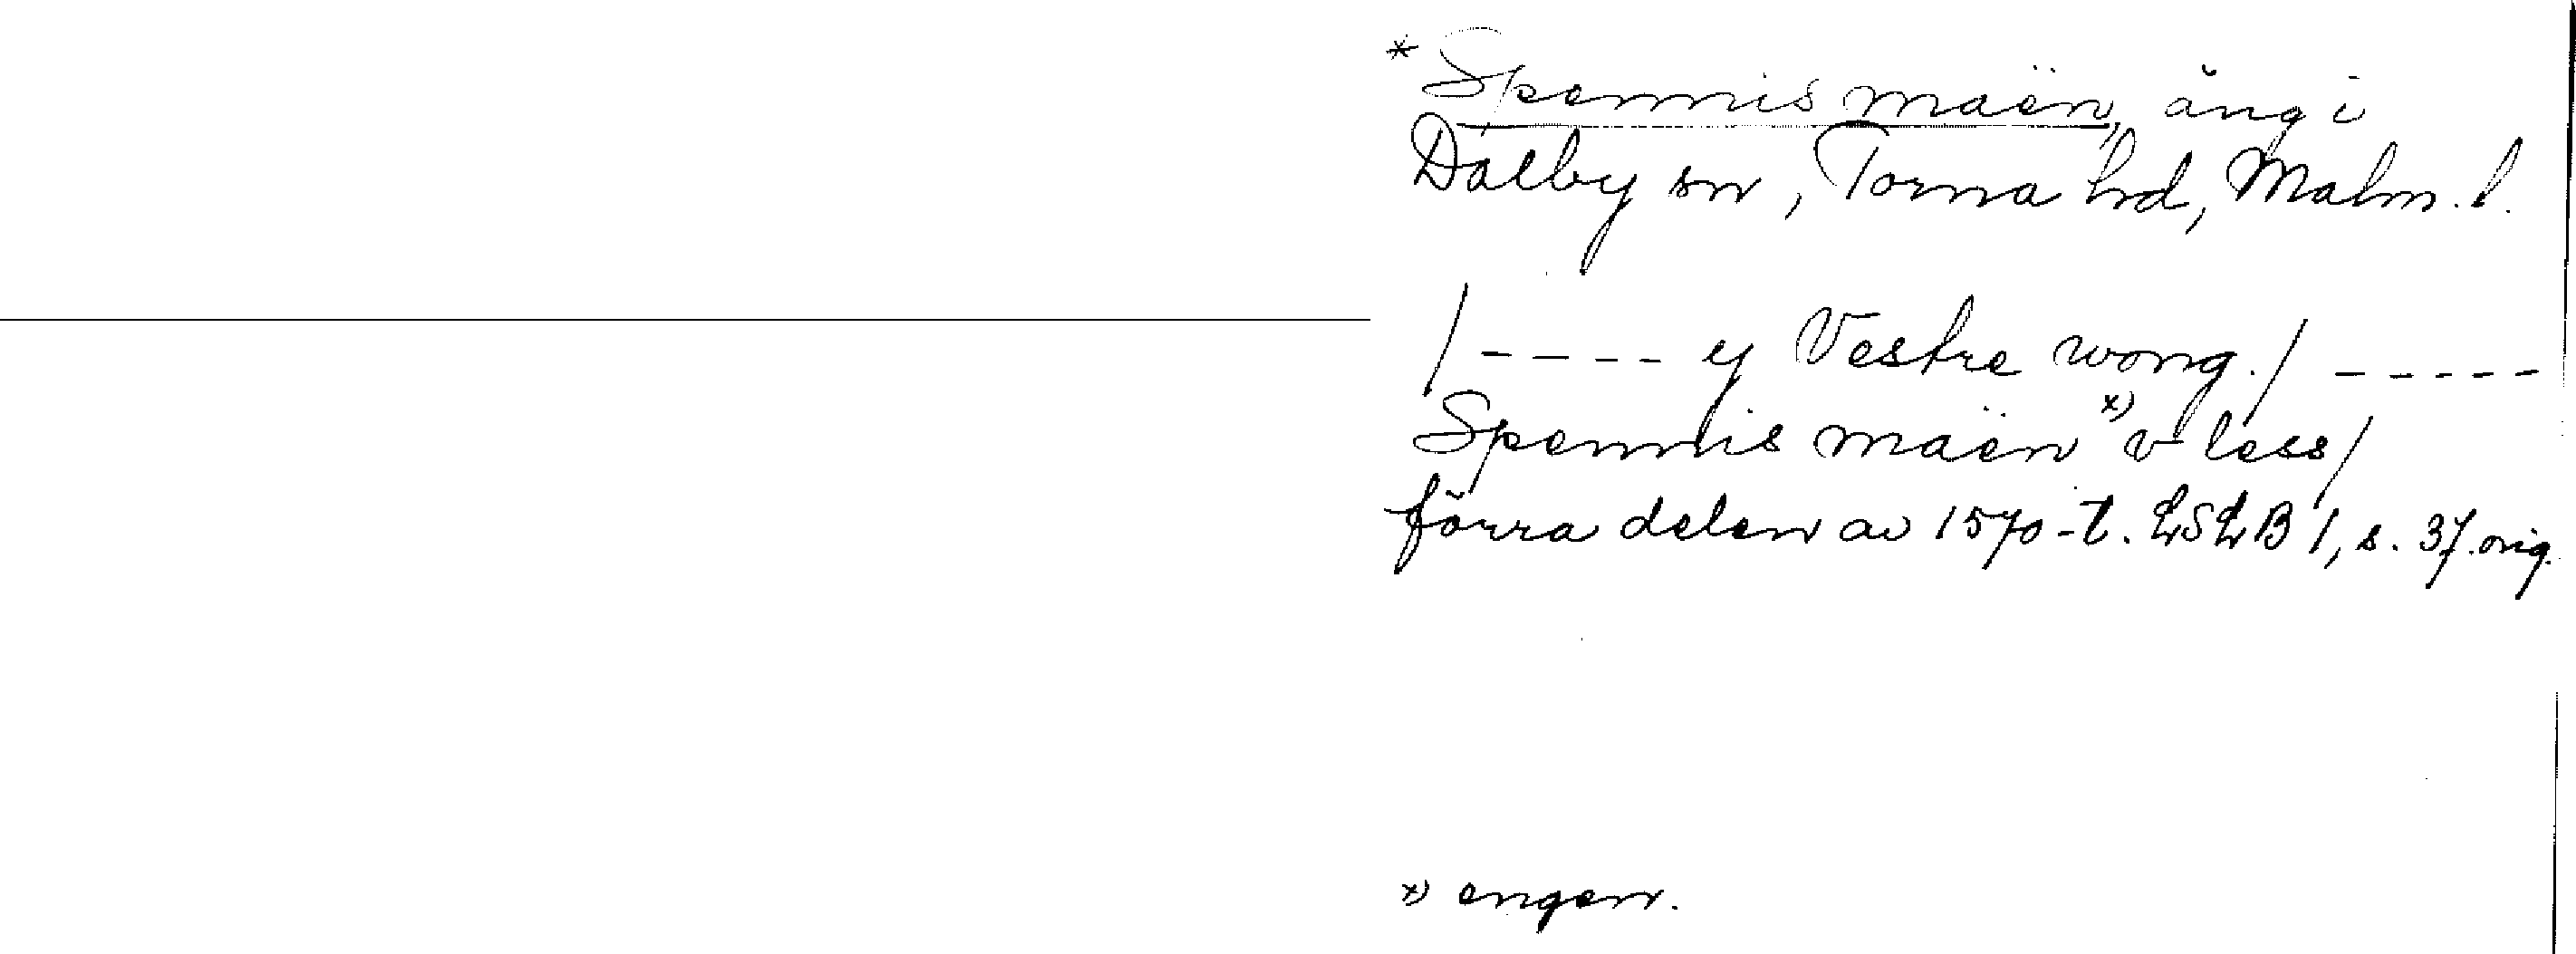 * Spennis maën, äng i
Dalby sn, Torna hd, Malm. l.
/ - - - - y Vestre wong. / - - - - -
Spennis maën x) v less /
förra delen av 1570-t. LSLB 1, s. 37. orig.
x) engen.